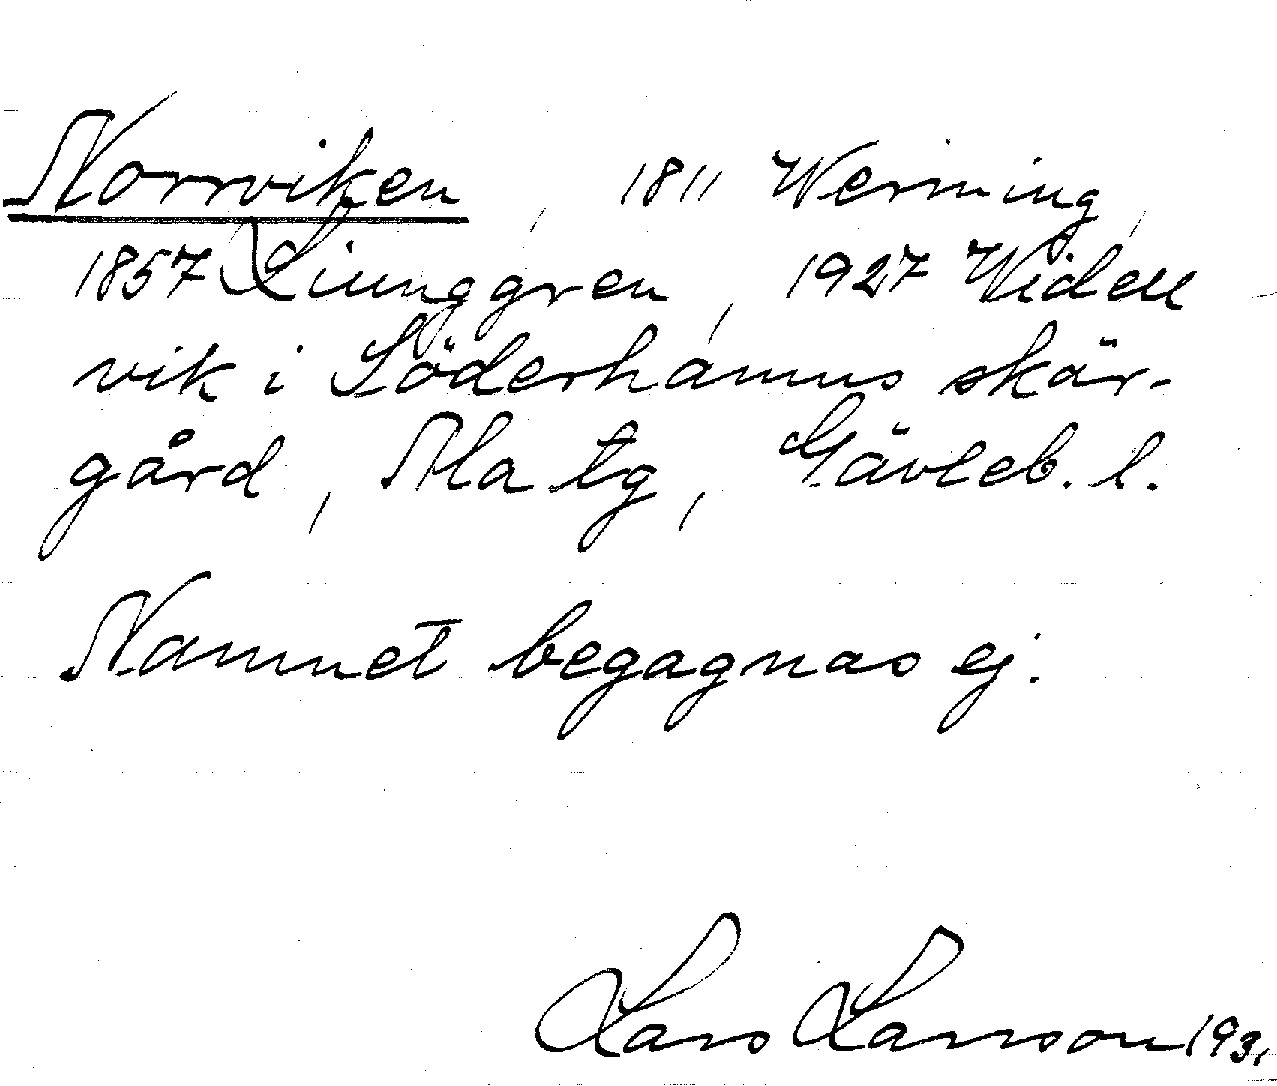 Norrviken, 1811 Werming,
1857 Liunggren, 1927 Widell
vik i Söderhamns skär-
gård, Ala tg, Gävleb. l.
Namnet begagnas ej.
Lars Larsson 193